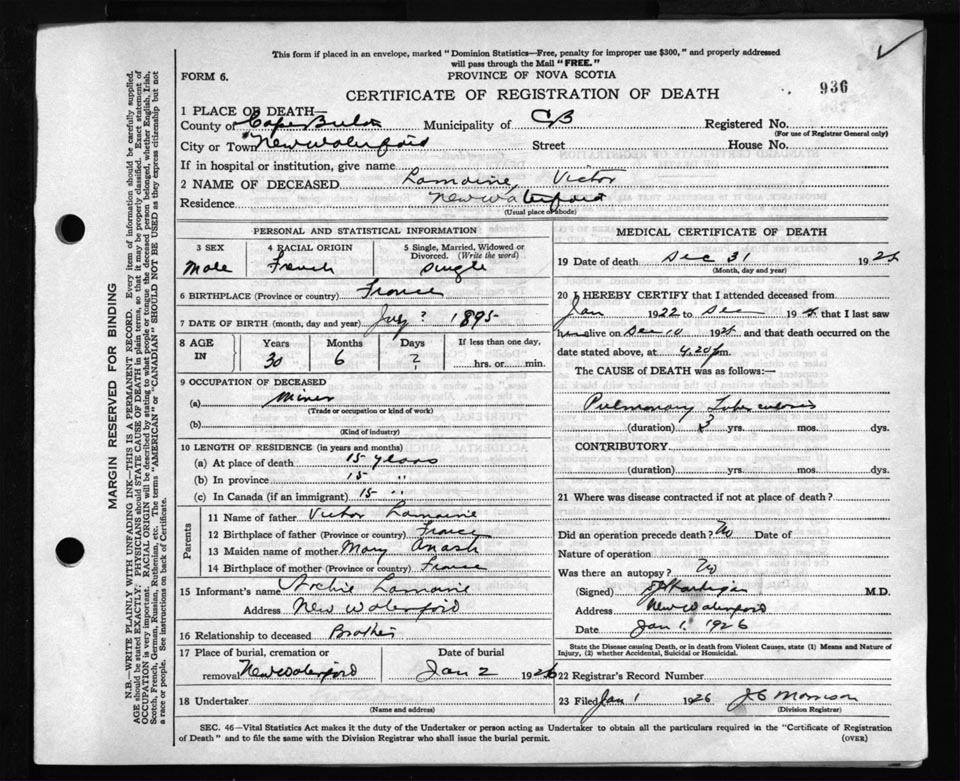 This form if placed in an envelope, marked "Dominion Statistics—Free, penalty for improper use $300," and properly addressed
will pass through the Mail "FREE."
FORM 6.
PROVINCE OF NOVA SCOTIA
936
CERTIFICATE OF REGISTRATION OF DEATH
1 PLACE OF DEATH—
County of Cape Breton Municipality of CB Registered No.
(For use of Registrar General only)
City or Town New Waterford Street House No.
If in hospital or institution, give name
2 NAME OF DECEASED Lamoine, Victor
Residence New Waterford
(Usual place of abode)
PERSONAL AND STATISTICAL INFORMATION
3 SEX
Male
4 RACIAL ORIGIN
French
5 Single, Married, Widowed or
Divorced. (Write the word)
Single
6 BIRTHPLACE (Province or country) France
7 DATE OF BIRTH (month, day and year) July ? 1895
8 AGE
IN
Years
30
Months
6
Days
?
If less than one day,
hrs. or min.
9 OCCUPATION OF DECEASED
(a) Miner
(Trade or occupation or kind of work)
(b)
(Kind of industry)
10 LENGTH OF RESIDENCE (in years and months)
(a) At place of death 15 years
(b) In province 15 "
(c) In Canada (if an immigrant) 15 "
Parents
11 Name of father Victor Lamoine
12 Birthplace of father (Province or country) France
13 Maiden name of mother Mary
14 Birthplace of mother (Province or country) France
15 Informant's name Archie Lamoine
Address New Waterford
16 Relationship to deceased Brother
17 Place of burial, cremation or
removal New Waterford
Date of burial
Jan 2 1926
18 Undertaker
(Name and address)
MEDICAL CERTIFICATE OF DEATH
19 Date of death Dec 31 192
(Month, day and year)
20 I HEREBY CERTIFY that I attended deceased from
Jan 1922 to Dec 19 that I last saw
him alive on Dec 10 192 and that death occurred on
date stated above, at 4.20 p.m.
The CAUSE of DEATH was as follows:—
Pulmonary Tuberculosis
(duration) 3 yrs. mos. dys.
CONTRIBUTORY
(duration) yrs. mos. dys.
21 Where was disease contracted if not at place of death?
Did an operation precede death? No Date of
Nature of operation
Was there an autopsy? No
(Signed) M.D.
Address New Waterford
Date Jan 1. 1926
State the Disease causing Death, or in death from Violent Causes, state (1) Means and Nature of
Injury, (2) whether Accidental, Suicidal or Homicidal.
22 Registrar's Record Number
23 Filed Jan 1 1926 J C Morrison
(Division Registrar)
SEC. 46—Vital Statistics Act makes it the duty of the Undertaker or person acting as Undertaker to obtain all the particulars required in the "Certificate of Registration
of Death" and to file the same with the Division Registrar who shall issue the burial permit.
(OVER)
MARGIN RESERVED FOR BINDING
N.B.—WRITE PLAINLY WITH UNFADING INK—THIS IS A PERMANENT RECORD. Every item of information should be carefully supplied.
AGE should be stated EXACTLY. PHYSICIANS should STATE CAUSE OF DEATH in plain terms, so that it may be properly classified. Exact statement of
OCCUPATION is very important. RACIAL ORIGIN will be described by stating to what people or tongue the deceased person belonged, whether English, Irish,
Scotch, French, German, Russian, Ruthenian, etc. The terms "AMERICAN" or "CANADIAN" SHOULD NOT BE USED as they express citizenship but not
a race or people. See instructions on back of Certificate.